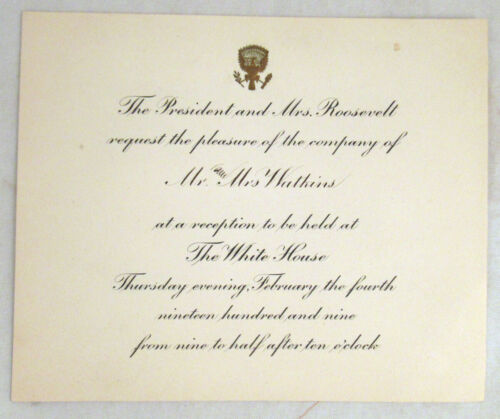 The President and Mrs. Roosevelt
request the pleasure of the company of
Mr. and Mrs Watkins
at a reception to be held at
The White House
Thursday evening, February the fourth
nineteen hundred and nine
from nine to half after ten o'clock